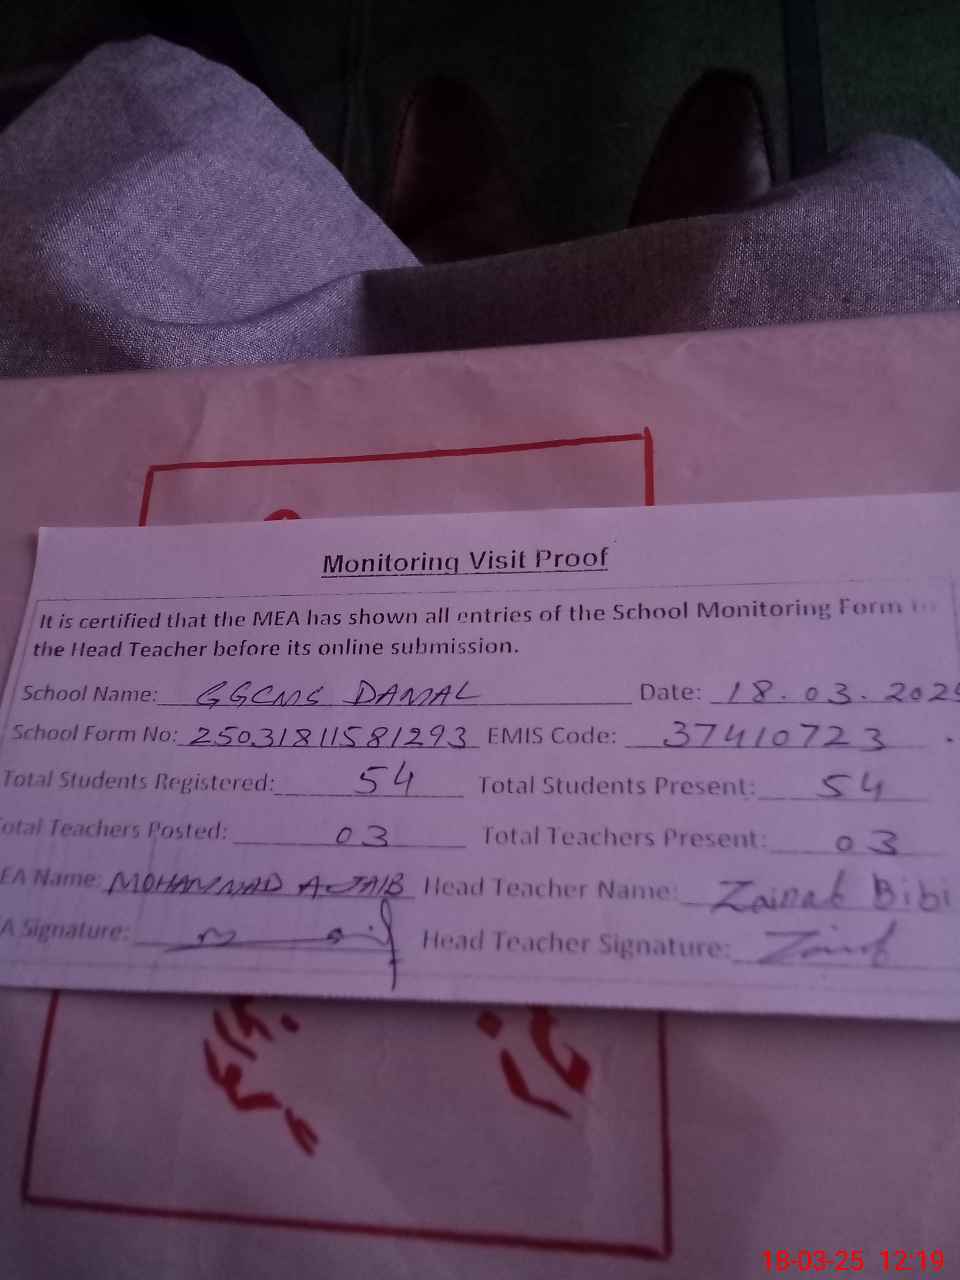 Monitoring Visit Proof
It is certified that the MEA has shown all entries of the School Monitoring Form to
the Head Teacher before its online submission.
School Name: GGCMS DAMAL Date: 18.03.2025
School Form No: 25031811581293 EMIS Code: 37410723
Total Students Registered: 54 Total Students Present: 54
otal Teachers Posted: 03 Total Teachers Present: 03
EA Name: MOHAMMAD AJAIB Head Teacher Name: Zainab Bibi
A Signature: Head Teacher Signature: Zainab
18-03-25 12:19